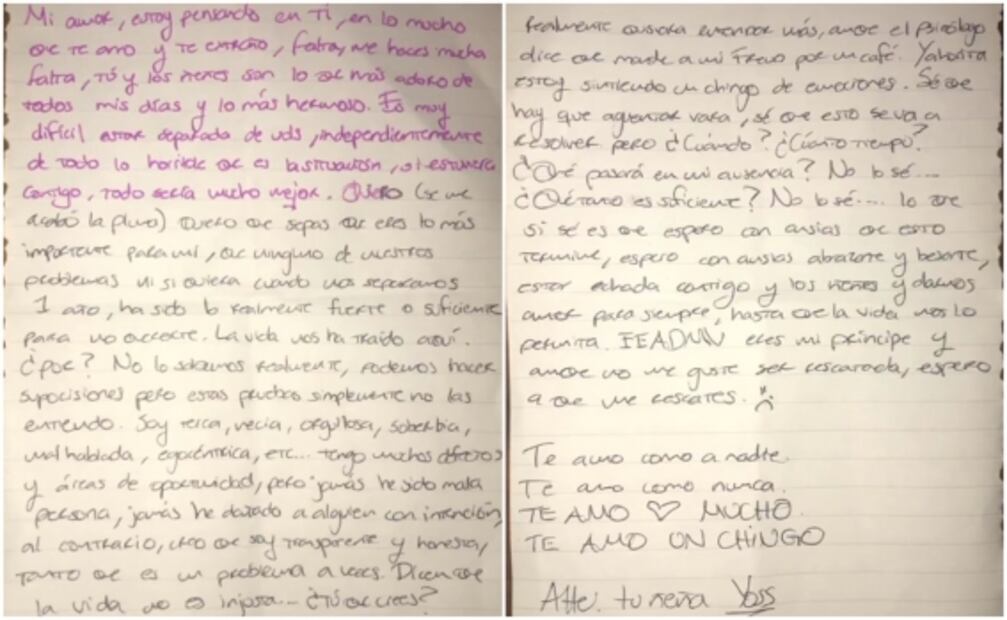 Mi amor, estoy pensando en Ti, en lo mucho
que te amo y te extraño, falta, me haces mucha
falta, tú y los nenes son lo que más adoro de
todos mis días y lo más hermoso. Es muy
difícil estar separada de uds, independientemente
de todo lo horrible que es la situación, si estuviera
contigo, todo sería mucho mejor. Quiero (se me
acabó la pluma) Quiero que sepas que eres lo más
importante para mí, que ninguno de nuestros
problemas ni si quiera cuando nos separamos
1 año, ha sido lo realmente fuerte o suficiente
para no quererte. La vida nos ha traído aquí.
¿por? No lo sabemos realmente, podemos hacer
suposiciones pero estas pruebas simplemente no las
entiendo. Soy terca, necia, orgullosa, soberbia,
mal hablada, egocéntrica, etc... tengo muchos defectos
y áreas de oportunidad, pero jamás he sido mala
persona, jamás he dañado a alguien con intención,
al contrario, creo que soy transparente y honesta,
tanto que es un problema a veces. Dicen que
la vida no es injusta... ¿Tú que crees?
Realmente quisiera entender más, aunque el psicólogo
dice que mande a mi Freud por un café. Yahorita
estoy sintiendo un chingo de emociones. Sé que
hay que aguantar vara, sé que esto se va a
resolver pero ¿Cuándo? ¿Cuánto tiempo?
¿Qué pasará en mi ausencia? No lo sé...
¿Qué tanto es suficiente? No lo sé.... lo que
si sé es que espero con ansias que esto
termine, espero con ansias abrazarte y besarte,
estar echada contigo y los nenes y darnos
amor para siempre, hasta que la vida nos lo
permita. FEADUW eres mi príncipe y
aunque no me guste ser rescatada, espero
a que me rescates.
Te amo como a nadie.
Te amo como nunca.
TE AMO ♡ MUCHO.
TE AMO UN CHINGO
Atte: tu nena Yoss